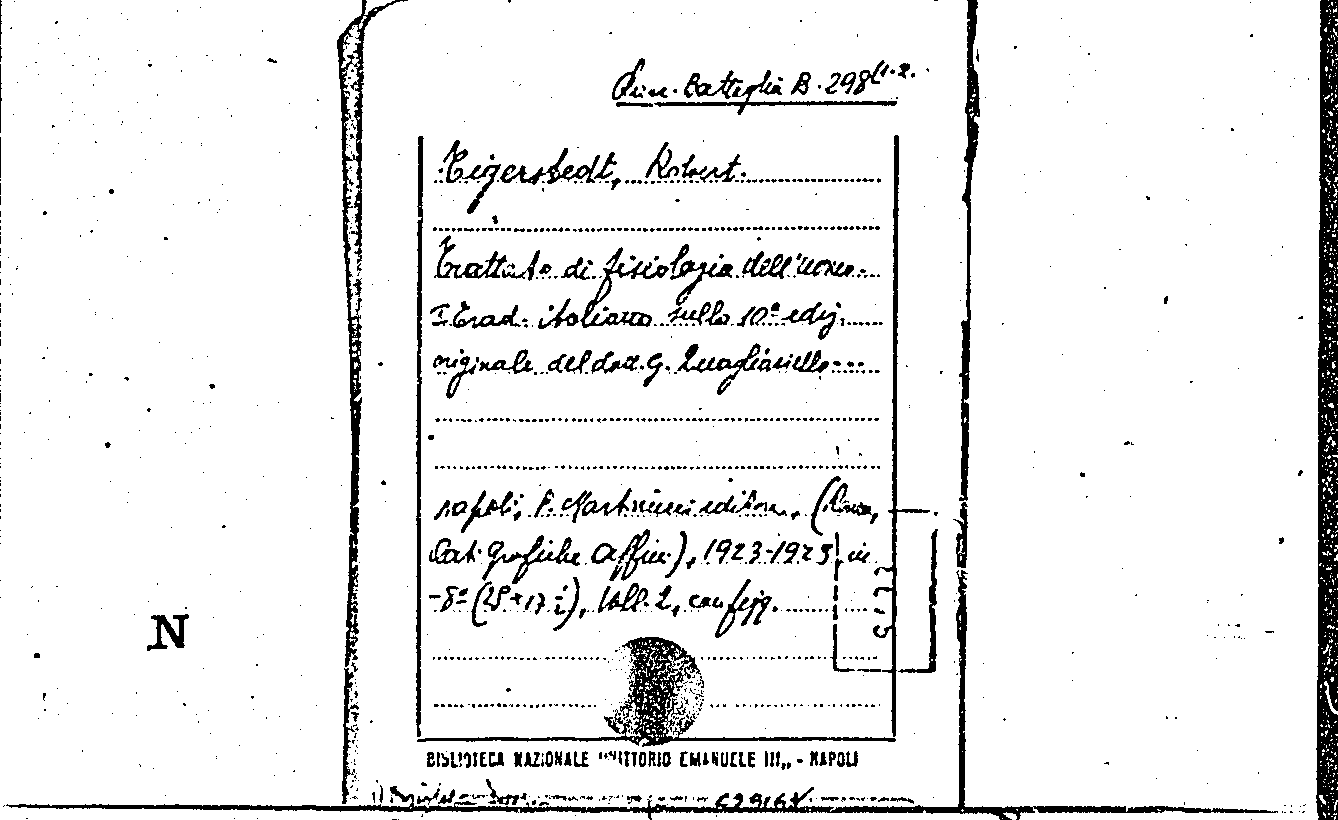 Battaglia B. 298(1-2.
Tigerstedt, Robert.
Trattato di fisiologia dell'uomo.
I Trad. italiana sulla 10ª ediz.
originale del dott. G. Quagliariello...
Napoli, editore, (Roma,
grafiche Affini), 1923-1925, in
-8º (25x17 ), Voll. 2, con figg.
N
BIBLIOTECA NAZIONALE "VITTORIO EMANUELE III„ - NAPOLI